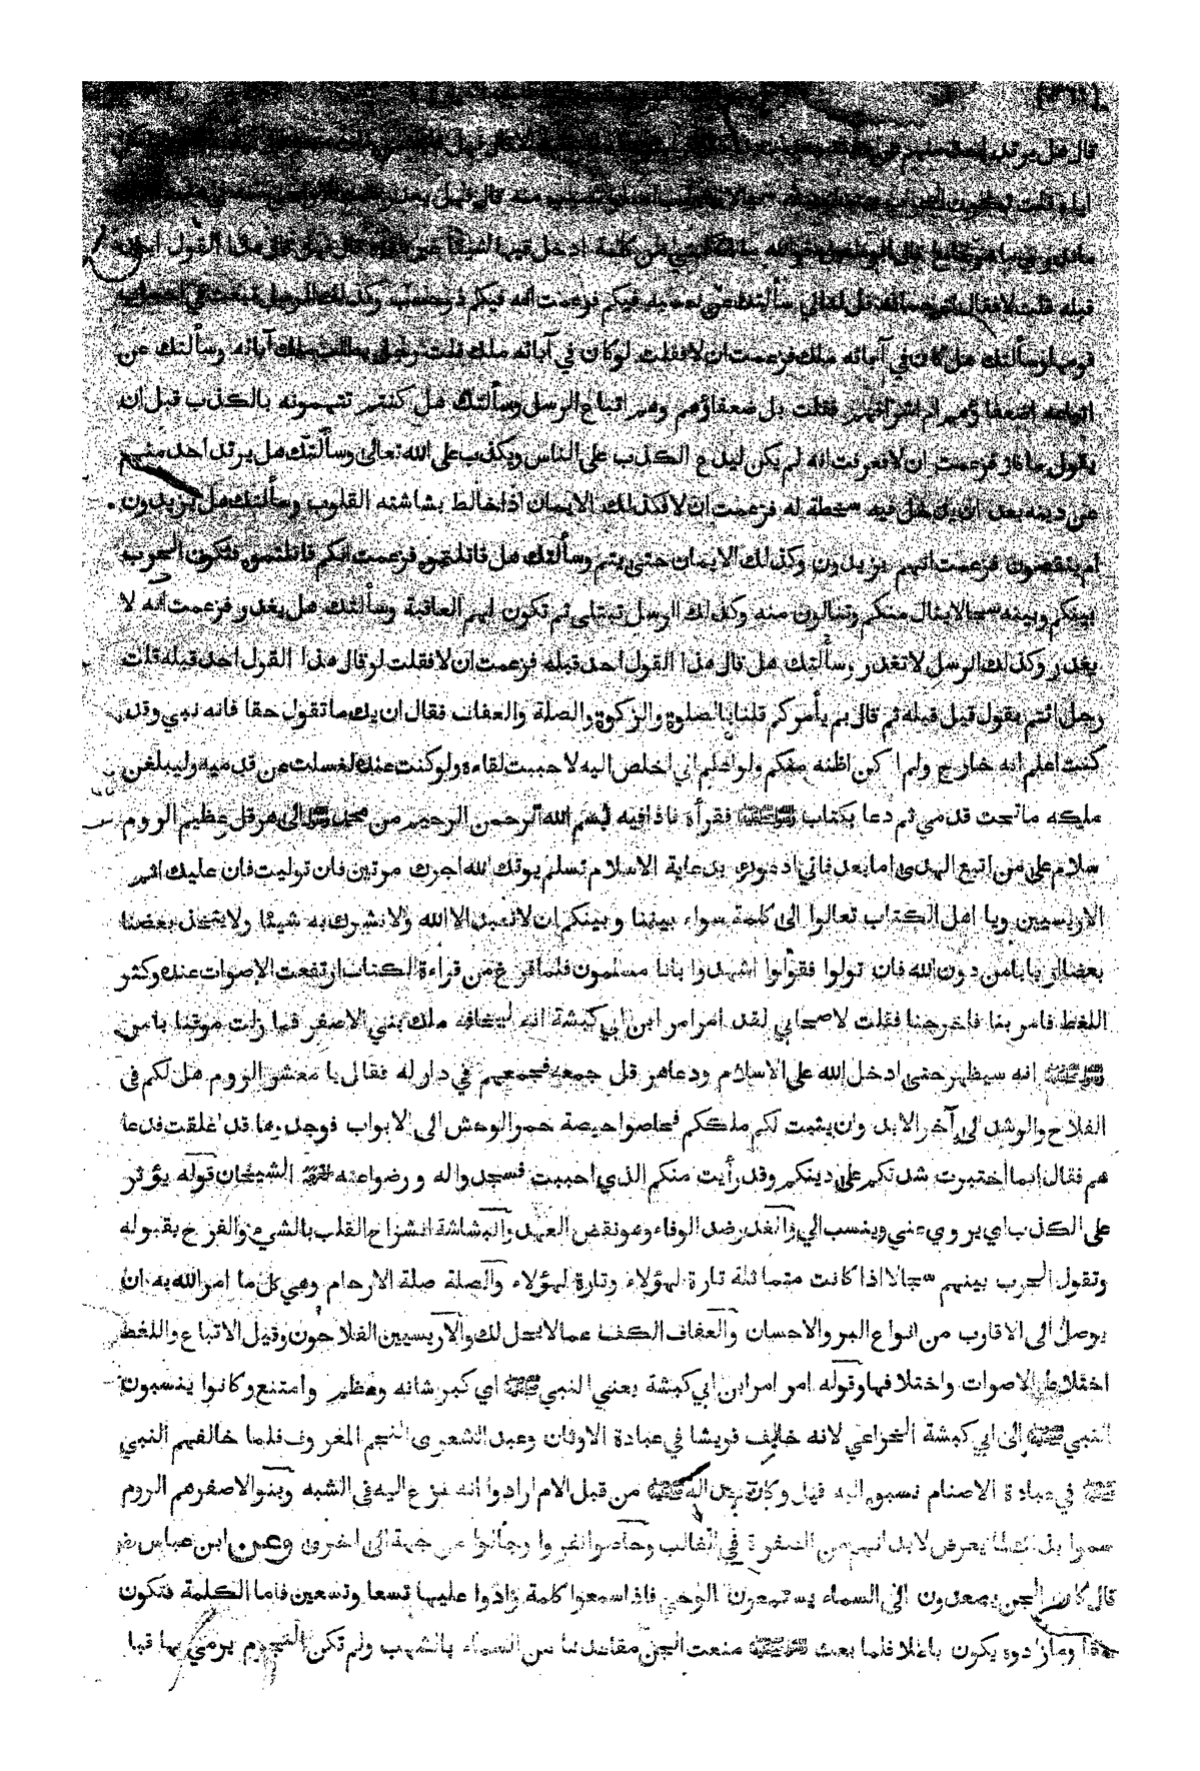 [٣٦١]
قال هل يرتد احد منهم عن
ايلو قلت
ما ندري ما هو قال والله ما امكنني من كلمة ادخل فيها شيئا غير هذه قال فهل قال هذا القول احد
قبله قلت لا فقال لترجمانه قل له اني سألتك عن حسبه فيكم فزعمت انه فيكم ذو حسب وكذلك الرسل تبعث في احساب
قومها وسألتك هل كان في آبائه ملك فزعمت ان لا فقلت لو كان في آبائه ملك قلت رجل يطلب ملك آبائه وسألتك عن
اتباعه اضعفاؤهم ام اشرافهم فقلت بل ضعفاؤهم وهم اتباع الرسل وسألتك هل كنتم تتهمونه بالكذب قبل ان
يقول ما قال فزعمت ان لا فعرفت انه لم يكن ليدع الكذب على الناس ويكذب على الله تعالى وسألتك هل يرتد احد منهم
عن دينه بعد ان يدخل فيه سخطة له فزعمت ان لا فكذلك الايمان اذا خالط بشاشته القلوب وسألتك هل يزيدون
ام ينقصون فزعمت انهم يزيدون وكذلك الايمان حتى يتم وسألتك هل قاتلتموه فزعمت انكم قاتلتموه فتكون الحرب
بينكم وبينه سجالا ينال منكم وتنالون منه وكذلك الرسل تبتلى ثم تكون لهم العاقبة وسألتك هل يغدر فزعمت انه لا
يغدر وكذلك الرسل لا تغدر وسألتك هل قال هذا القول احد قبله فزعمت ان لا فقلت لو قال هذا القول احد قبله قلت
رجل ائتم بقول قيل قبله ثم قال بم يأمركم قلنا بالصلوة والزكوة والصلة والعفاف فقال ان يك ما تقول حقا فانه نبي وقد
كنت اعلم انه خارج ولم اكن اظنه منكم ولو اعلم اني اخلص اليه لاحببت لقاءه ولو كنت عنده لغسلت عن قدميه وليبلغن
ملكه ما تحت قدمي ثم دعا بكتاب ﷺ فقرأه فاذا فيه بسم الله الرحمن الرحيم من محمد رسول الله الى هرقل عظيم الروم
سلام على من اتبع الهدى اما بعد فاني ادعوك بدعاية الاسلام تسلم يوتك الله اجرك مرتين فان توليت فان عليك اثم
الاريسيين ويا اهل الكتاب تعالوا الى كلمة سواء بيننا وبينكم ان لا نعبد الا الله ولا نشرك به شيئا ولا يتخذ بعضنا
بعضا اربابا من دون الله فان تولوا فقولوا اشهدوا بانا مسلمون فلما فرغ من قراءة الكتاب ارتفعت الاصوات عنده وكثر
اللغط فامر بنا فاخرجنا فقلت لاصحابي لقد امر امر ابن ابي كبشة انه ليخافه ملك بني الاصفر فما زلت موقنا بامر
ﷺ انه سيظهر حتى ادخل الله علي الاسلام ودعا هرقل جمعه فجمعهم في دار له فقال يا معشر الروم هل لكم في
الفلاح والرشد الى آخر الابد وان يثبت لكم ملككم فحاصوا حيصة حمر الوحش الى الابواب فوجدوها قد غلقت فدعا
هم فقال انما اختبرت شدتكم على دينكم وقد رأيت منكم الذي احببت فسجدوا له ورضوا عنه الشيخان قوله يؤثر
على الكذب اي يروي عني وينسب الي والغدر ضد الوفاء وهو نقض العهد والبشاشة انشراح القلب بالشيء والفرح بقبوله
وتقول الحرب بينهم سجالا اذا كانت متماثلة تارة لهؤلاء وتارة لهؤلاء والصلة صلة الارحام وهي كل ما امر الله به ان
يوصل الى الاقارب من انواع البر والاحسان والعفاف الكف عما لا يحل لك والاريسيين الفلاحون وقيل الاتباع واللغط
اختلاط الاصوات واختلافها وقوله امر امر ابن ابي كبشة يعني النبي ﷺ اي كبر شانه وعظم وامتنع وكانوا ينسبون
النبي ﷺ الى ابي كبشة الخزاعي لانه خالف قريشا في عبادة الاوثان وعبد الشعرى النجم المعروف فلما خالفهم النبي
ﷺ في عبادة الاصنام نسبوه اليه قيل وكان جد اله ﷺ من قبل الام ارادوا انه نزع اليه في الشبه وبنو الاصفر هم الروم
سموا بذلك لما يعرض لابدانهم من الصفرة في الغالب وحاصوا نفروا وجالوا من جهة الى اخرى وعن ابن عباس
قال كان الجن يصعدون الى السماء يستمعون الوحي فاذا سمعوا كلمة زادوا عليها تسعا وتسعين فاما الكلمة فتكون
حقا وما زادوه يكون باطلا فلما بعث ﷺ منعت الجن مقاعدها من السماء بالشهب ولم تكن النجوم يرمي بها قبل